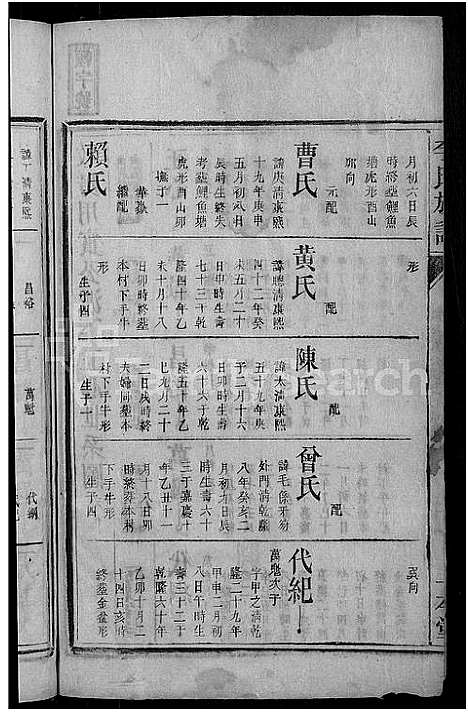 月初六日辰
時終葬鯉魚
塘虎形酉山
卯向
曹氏
元配
諱庚清康熙
十九年庚申
五月初八日
生辰時終失
考葬鯉魚塘
虎形酉山卯
向
撫子一
華嶽
繼配
賴氏
諱 清康熙
形
黃氏
配
諱聰清康熙
四十二年癸
未五月二十
日申時生壽
七十三于乾
隆四十年乙
未十月十八
日卯時終葬
本村下手牛
形
生子四
昌裕
陳氏
配
諱太清康熙
五十九年庚
子二月十六
日卯時生壽
六十六于乾
隆五十年乙
巳九月二十
二日戌時終
夫婦同葬本
村下手牛形
生子一
萬魁
曾氏
配
處門清乾隆
八年癸亥二
月初九日辰
時生壽六十
三于嘉慶十
年乙丑十一
月十八日卯
時葬本村
下手牛形
生子四
代綱
巽向
代紀
萬魁次子
字甲之清乾
隆二十九年
甲申二月初
八日午時生
壽三十二于
乾隆六十年
乙卯十月二
十四日亥時
終葬金盆形
李氏族譜